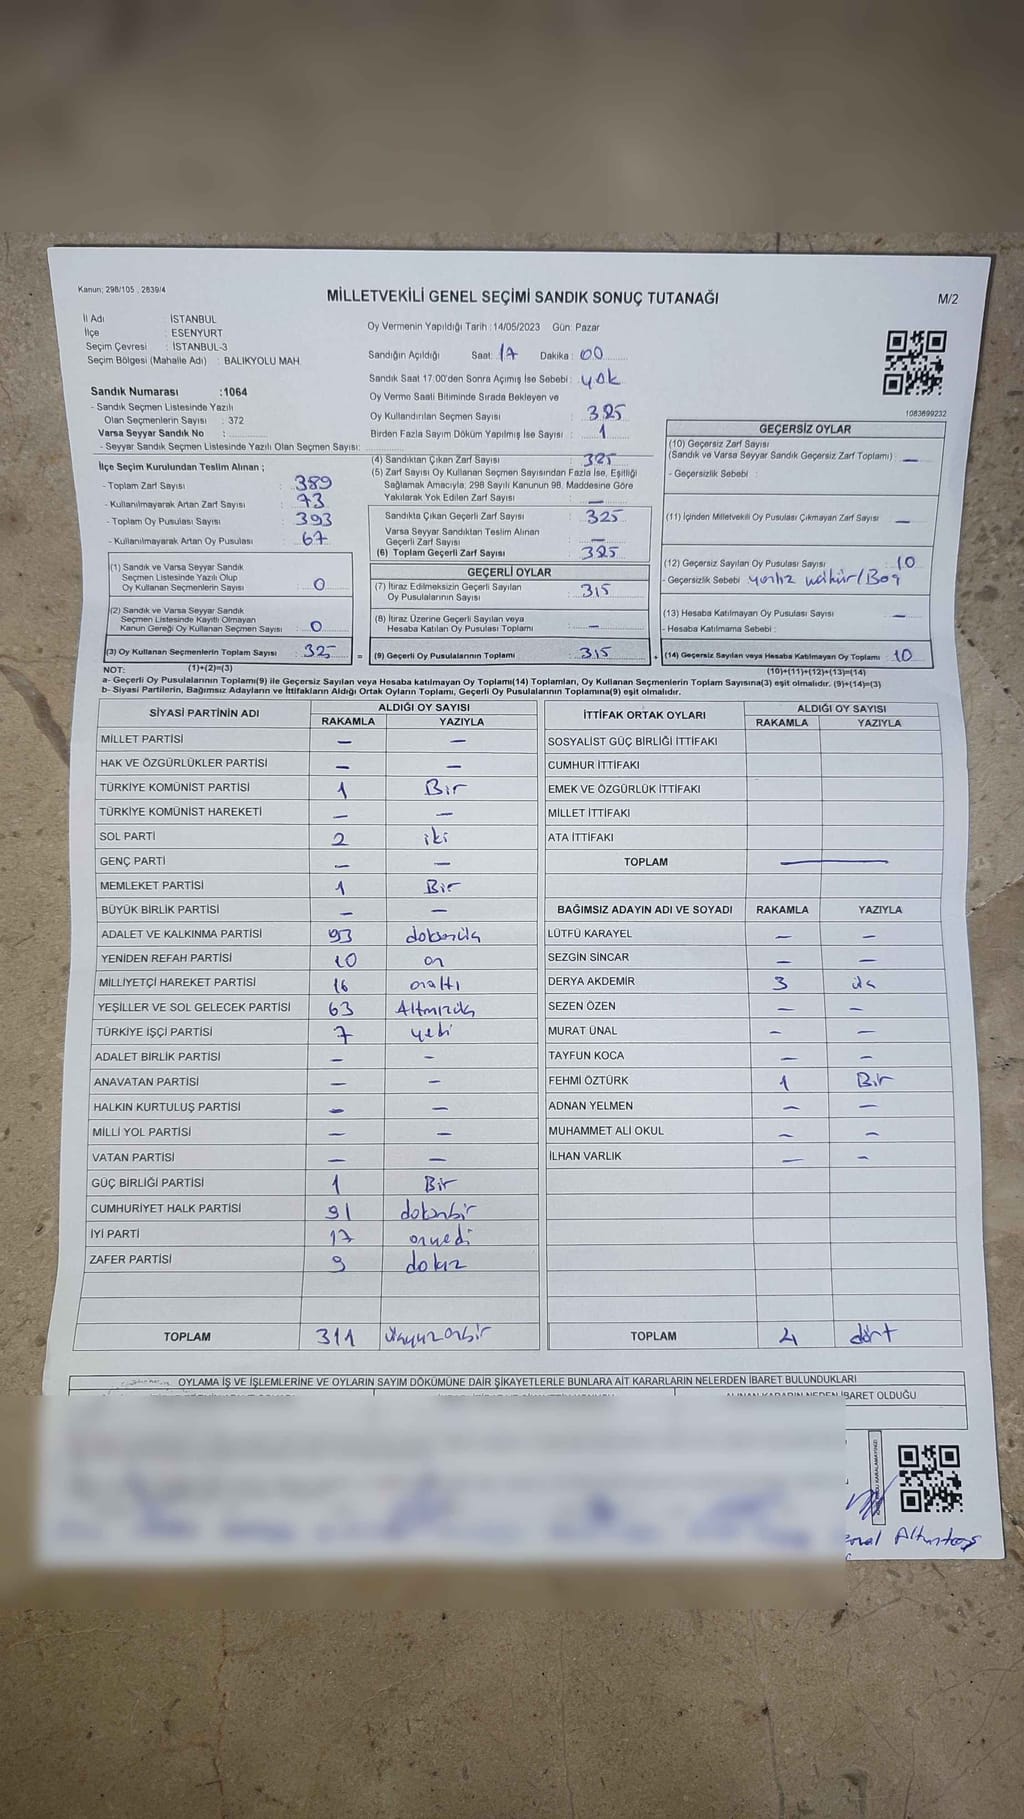 Kanun; 298/105 , 2839/4
MİLLETVEKİLİ GENEL SEÇİMİ SANDIK SONUÇ TUTANAĞI
M/2
İl Adı : İSTANBUL
İlçe : ESENYURT
Seçim Çevresi : İSTANBUL-3
Seçim Bölgesi (Mahalle Adı) : BALIKYOLU MAH.
Oy Vermenin Yapıldığı Tarih : 14/05/2023 Gün: Pazar
Sandığın Açıldığı Saat: 17 Dakika : 00
Sandık Saat 17.00'den Sonra Açımış İse Sebebi : yok
Oy Verme Saati Bitiminde Sırada Bekleyen ve
Oy Kullandırılan Seçmen Sayısı : 325
Birden Fazla Sayım Döküm Yapılmış İse Sayısı : 1
1083699232
Sandık Numarası : 1064
- Sandık Seçmen Listesinde Yazılı
Olan Seçmenlerin Sayısı : 372
Varsa Seyyar Sandık No :
- Seyyar Sandık Seçmen Listesinde Yazılı Olan Seçmen Sayısı:
İlçe Seçim Kurulundan Teslim Alınan ;
- Toplam Zarf Sayısı : 389
- Kullanılmayarak Artan Zarf Sayısı : 73
- Toplam Oy Pusulası Sayısı : 393
- Kullanılmayarak Artan Oy Pusulası : 67
(1) Sandık ve Varsa Seyyar Sandık
Seçmen Listesinde Yazılı Olup
Oy Kullanan Seçmenlerin Sayısı : 0
(2) Sandık ve Varsa Seyyar Sandık
Seçmen Listesinde Kayıtlı Olmayan
Kanun Gereği Oy Kullanan Seçmen Sayısı : 0
(3) Oy Kullanan Seçmenlerin Toplam Sayısı : 325
(1)+(2)=(3)
(4) Sandıktan Çıkan Zarf Sayısı : 325
(5) Zarf Sayısı Oy Kullanan Seçmen Sayısından Fazla İse, Eşitliği
Sağlamak Amacıyla, 298 Sayılı Kanunun 98. Maddesine Göre
Yakılarak Yok Edilen Zarf Sayısı : —
Sandıkta Çıkan Geçerli Zarf Sayısı : 325
Varsa Seyyar Sandıktan Teslim Alınan
Geçerli Zarf Sayısı : —
(6) Toplam Geçerli Zarf Sayısı : 325
GEÇERLİ OYLAR
(7) İtiraz Edilmeksizin Geçerli Sayılan
Oy Pusulalarının Sayısı : 315
(8) İtiraz Üzerine Geçerli Sayılan veya
Hesaba Katılan Oy Pusulası Toplamı : —
= (9) Geçerli Oy Pusulalarının Toplamı : 315 +
GEÇERSİZ OYLAR
(10) Geçersiz Zarf Sayısı
(Sandık ve Varsa Seyyar Sandık Geçersiz Zarf Toplamı) : —
- Geçersizlik Sebebi :
(11) İçinden Milletvekili Oy Pusulası Çıkmayan Zarf Sayısı : —
(12) Geçersiz Sayılan Oy Pusulası Sayısı : 10
- Geçersizlik Sebebi
(13) Hesaba Katılmayan Oy Pusulası Sayısı : —
- Hesaba Katılmama Sebebi :
(14) Geçersiz Sayılan veya Hesaba Katılmayan Oy Toplamı : 10
(10)+(11)+(12)+(13)=(14)
NOT:
a- Geçerli Oy Pusulalarının Toplamı(9) ile Geçersiz Sayılan veya Hesaba katılmayan Oy Toplamı(14) Toplamları, Oy Kullanan Seçmenlerin Toplam Sayısına(3) eşit olmalıdır. (9)+(14)=(3)
b- Siyasi Partilerin, Bağımsız Adayların ve İttifakların Aldığı Ortak Oyların Toplamı, Geçerli Oy Pusulalarının Toplamına(9) eşit olmalıdır.
SİYASİ PARTİNİN ADI ALDIĞI OY SAYISI
RAKAMLA YAZIYLA
MİLLET PARTİSİ — —
HAK VE ÖZGÜRLÜKLER PARTİSİ — —
TÜRKİYE KOMÜNİST PARTİSİ 1 Bir
TÜRKİYE KOMÜNİST HAREKETİ — —
SOL PARTİ 2 iki
GENÇ PARTİ — —
MEMLEKET PARTİSİ 1 Bir
BÜYÜK BİRLİK PARTİSİ — —
ADALET VE KALKINMA PARTİSİ 93 doksanüç
YENİDEN REFAH PARTİSİ 10 on
MİLLİYETÇİ HAREKET PARTİSİ 16 onaltı
YEŞİLLER VE SOL GELECEK PARTİSİ 63 Altmışüç
TÜRKİYE İŞÇİ PARTİSİ 7 yedi
ADALET BİRLİK PARTİSİ — —
ANAVATAN PARTİSİ — —
HALKIN KURTULUŞ PARTİSİ — —
MİLLİ YOL PARTİSİ — —
VATAN PARTİSİ — —
GÜÇ BİRLİĞİ PARTİSİ 1 Bir
CUMHURİYET HALK PARTİSİ 91 doksanbir
İYİ PARTİ 17 onyedi
ZAFER PARTİSİ 9 dokuz
TOPLAM 311 üçyüzonbir
İTTİFAK ORTAK OYLARI ALDIĞI OY SAYISI
RAKAMLA YAZIYLA
SOSYALİST GÜÇ BİRLİĞİ İTTİFAKI
CUMHUR İTTİFAKI
EMEK VE ÖZGÜRLÜK İTTİFAKI
MİLLET İTTİFAKI
ATA İTTİFAKI
TOPLAM —
BAĞIMSIZ ADAYIN ADI VE SOYADI RAKAMLA YAZIYLA
LÜTFÜ KARAYEL — —
SEZGİN SİNCAR — —
DERYA AKDEMİR 3 üç
SEZEN ÖZEN — —
MURAT ÜNAL — —
TAYFUN KOCA — —
FEHMİ ÖZTÜRK 1 Bir
ADNAN YELMEN — —
MUHAMMET ALİ OKUL — —
İLHAN VARLIK — —
TOPLAM 4 dört
OYLAMA İŞ VE İŞLEMLERİNE VE OYLARIN SAYIM DÖKÜMÜNE DAİR ŞİKAYETLERLE BUNLARA AİT KARARLARIN NELERDEN İBARET BULUNDUKLARI
ALINAN KARARIN NEDEN İBARET OLDUĞU